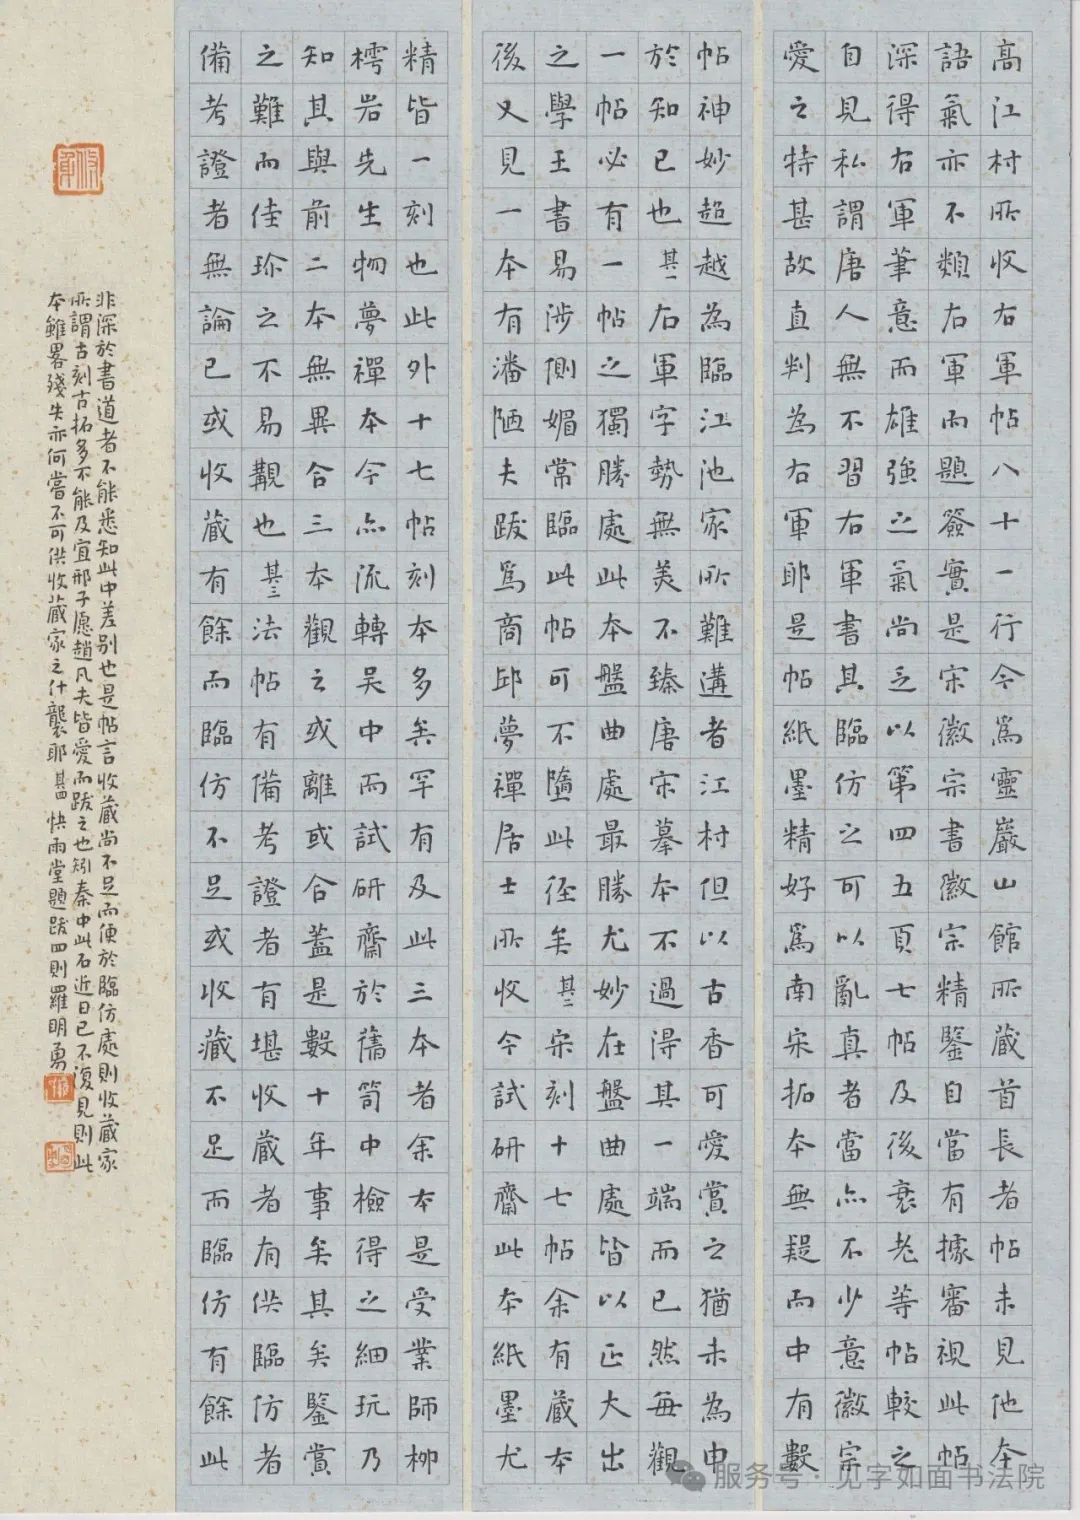 高江村所收右軍帖八十一行今為靈巖山館所蔵首長者帖未見他本
語氣亦不類右軍而題簽實是宋徽宗書徽宗精鑒自當有據審視此帖
深得右軍筆意而雄強之氣尚乏以第四五頁七帖及後衰老等帖較之
自見私謂唐人無不習右軍書其臨仿之可以亂真者當亦不少意徽宗
愛之特甚故直判為右軍耶是帖紙墨精好為南宋拓本無疑而中有數
帖神妙超越為臨江池家所難遘者江村但以古香可愛賞之猶未為申
於知己也其一右軍字勢無美不臻唐宋摹本不過得其一端而已然每觀
一帖必有一帖之獨勝處此本盤曲處最勝尤妙在盤曲處皆以正大出
之學王書易涉側媚常臨此帖可不墮此徑矣其二宋刻十七帖余有蔵本
後又見一本有潘陋夫跋為商邱夢禪居士所收今試研齋此本紙墨尤
精皆一刻也此外十七帖刻本多矣罕有及此三本者余本是受業師柳
樗岩先生物夢禪本今亦流轉吴中而試研齋於舊笥中檢得之細玩乃
知其與前二本無異合三本觀之或離或合蓋是數十年事矣其矣鑒賞
之難而佳珎之不易覯也其三法帖有備考證者有堪收蔵者有供臨仿者
備考證者無論已或收蔵有餘而臨仿不足或收蔵不足而臨仿有餘此
非深於書道者不能悉知此中差别也是帖言收蔵尚不足而便於臨仿處則收蔵家
所謂古刻古拓多不能及宜邢子愿趙凡夫皆愛而跋之也矧秦中此石近日已不復見則此
本雖畧殘失亦何嘗不可供收蔵家之什襲耶其四快雨堂題跋四則羅明勇
服务号·见字如面书法院